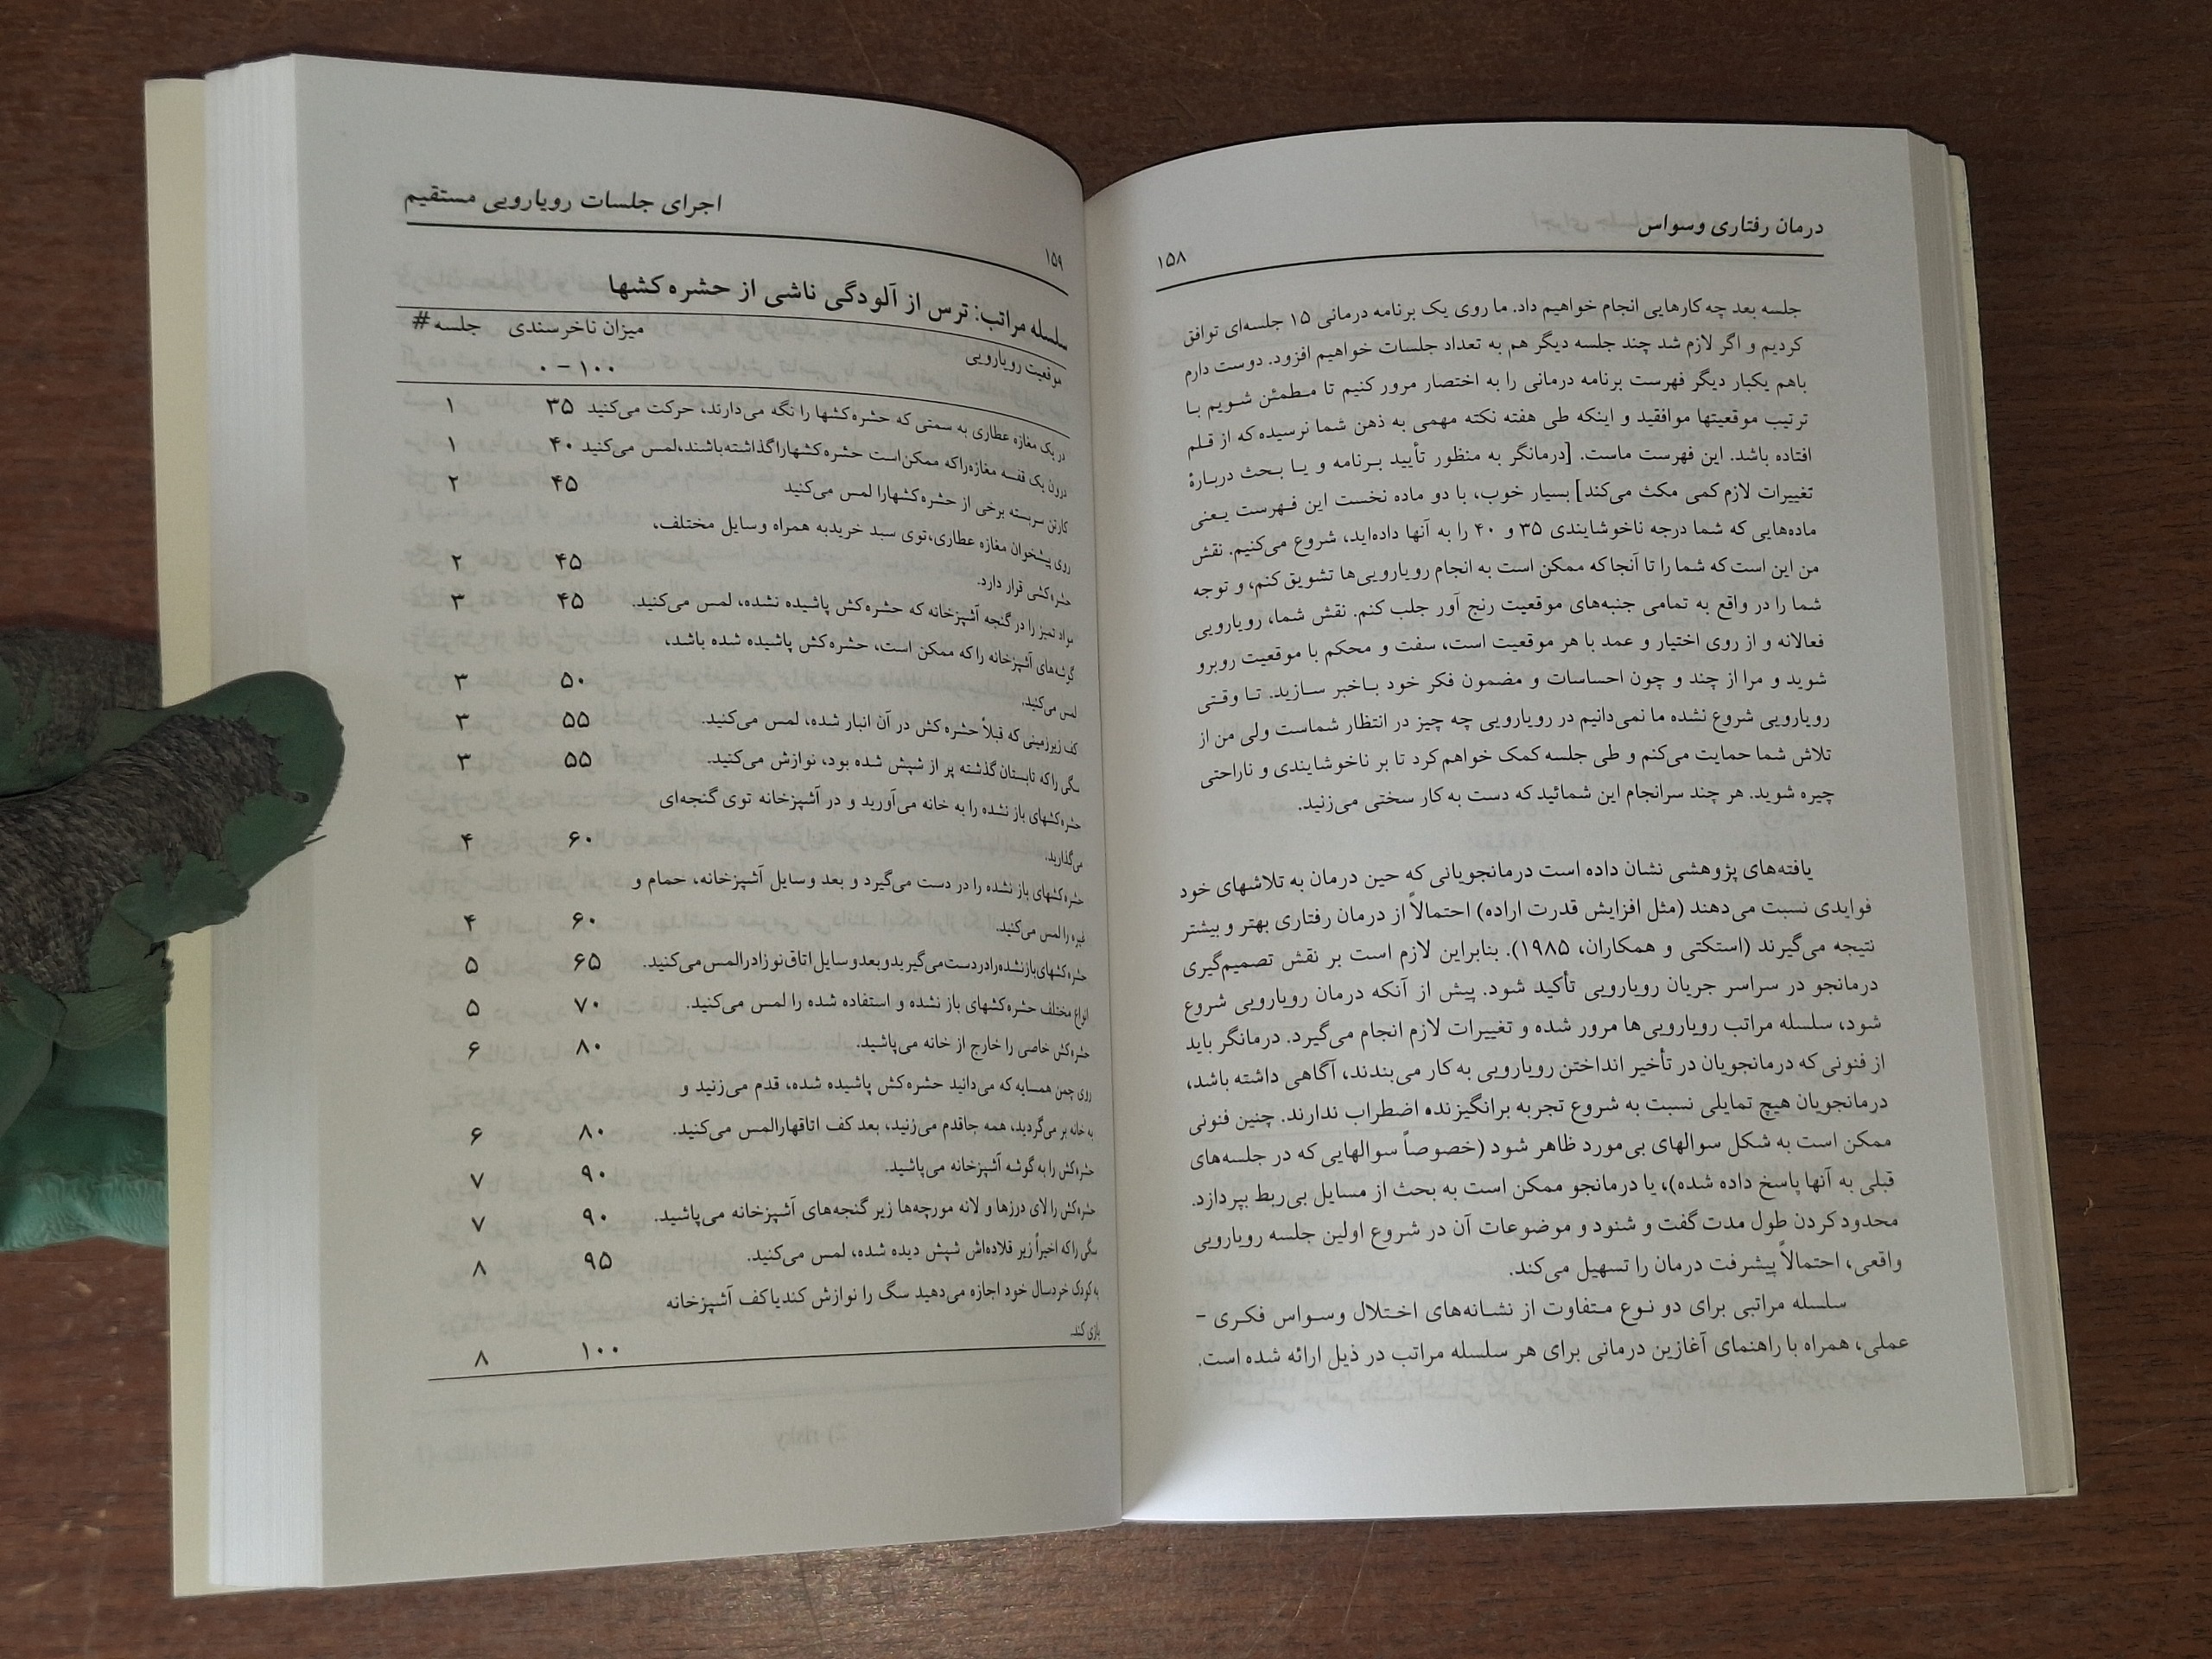 درمان رفتاری وسواس
۱۵۸
جلسه بعد چه کارهایی انجام خواهیم داد. ما روی یک برنامه درمانی ۱۵ جلسه‌ای توافق
کردیم و اگر لازم شد چند جلسه دیگر هم به تعداد جلسات خواهیم افزود. دوست دارم
باهم یکبار دیگر فهرست برنامه درمانی را به اختصار مرور کنیم تا مطمئن شویم با
ترتیب موقعیتها موافقید و اینکه طی هفته نکته مهمی به ذهن شما نرسیده که از قلم
افتاده باشد. این فهرست ماست. [درمانگر به منظور تأیید برنامه و یا بحث دربارهٔ
تغییرات لازم کمی مکث می‌کند] بسیار خوب، با دو ماده نخست این فهرست یعنی
ماده‌هایی که شما درجه ناخوشایندی ۳۵ و ۴۰ را به آنها داده‌اید، شروع می‌کنیم. نقش
من این است که شما را تا آنجا که ممکن است به انجام رویارویی‌ها تشویق کنم، و توجه
شما را در واقع به تمامی جنبه‌های موقعیت رنج آور جلب کنم. نقش شما، رویارویی
فعالانه و از روی اختیار و عمد با هر موقعیت است، سفت و محکم با موقعیت روبرو
شوید و مرا از چند و چون احساسات و مضمون فکر خود باخبر سازید. تا وقتی
رویارویی شروع نشده ما نمی‌دانیم در رویارویی چه چیز در انتظار شماست ولی من از
تلاش شما حمایت می‌کنم و طی جلسه کمک خواهم کرد تا بر ناخوشایندی و ناراحتی
چیره شوید. هر چند سرانجام این شمائید که دست به کار سختی می‌زنید.
یافته‌های پژوهشی نشان داده است درمانجویانی که حین درمان به تلاشهای خود
فوایدی نسبت می‌دهند (مثل افزایش قدرت اراده) احتمالاً از درمان رفتاری بهتر و بیشتر
نتیجه می‌گیرند (استکتی و همکاران، ۱۹۸۵). بنابراین لازم است بر نقش تصمیم‌گیری
درمانجو در سراسر جریان رویارویی تأکید شود. پیش از آنکه درمان رویارویی شروع
شود، سلسله مراتب رویارویی‌ها مرور شده و تغییرات لازم انجام می‌گیرد. درمانگر باید
از فنونی که درمانجویان در تأخیر انداختن رویارویی به کار می‌بندند، آگاهی داشته باشد،
درمانجویان هیچ تمایلی نسبت به شروع تجربه برانگیزنده اضطراب ندارند. چنین فنونی
ممکن است به شکل سوالهای بی‌مورد ظاهر شود (خصوصاً سوالهایی که در جلسه‌های
قبلی به آنها پاسخ داده شده)، یا درمانجو ممکن است به بحث از مسایل بی‌ربط بپردازد.
محدود کردن طول مدت گفت و شنود و موضوعات آن در شروع اولین جلسه رویارویی
واقعی، احتمالاً پیشرفت درمان را تسهیل می‌کند.
سلسله مراتبی برای دو نوع متفاوت از نشانه‌های اختلال وسواس فکری –
عملی، همراه با راهنمای آغازین درمانی برای هر سلسله مراتب در ذیل ارائه شده است.
اجرای جلسات رویارویی مستقیم
۱۵۹
سلسله مراتب: ترس از آلودگی ناشی از حشره‌کشها
موقعیت رویارویی میزان ناخرسندی جلسه #
۱۰۰ – ۰
در یک مغازه عطاری به سمتی که حشره‌کشها را نگه می‌دارند، حرکت می‌کنید ۳۵ ۱
درون یک قفسه مغازه را که ممکن است حشره‌کشها را گذاشته باشند، لمس می‌کنید ۴۰ ۱
کارتن سربسته برخی از حشره‌کشها را لمس می‌کنید ۴۵ ۲
روی پیشخوان مغازه عطاری، توی سبد خرید به همراه وسایل مختلف،
حشره‌کشی قرار دارد. ۴۵ ۲
مواد تمیز را در گنجه آشپزخانه که حشره‌کش پاشیده نشده، لمس می‌کنید. ۴۵ ۳
گوشه‌های آشپزخانه را که ممکن است، حشره‌کش پاشیده شده باشد،
لمس می‌کنید. ۵۰ ۳
کف زیرزمینی که قبلاً حشره‌کش در آن انبار شده، لمس می‌کنید. ۵۵ ۳
سگی را که تابستان گذشته پر از شپش شده بود، نوازش می‌کنید. ۵۵ ۳
حشره‌کشهای باز نشده را به خانه می‌آورید و در آشپزخانه توی گنجه‌ای
می‌گذارید. ۶۰ ۴
حشره‌کشهای باز نشده را در دست می‌گیرد و بعد وسایل آشپزخانه، حمام و
غیره را لمس می‌کنید. ۶۰ ۴
حشره‌کشهای باز نشده را در دست می‌گیرید و بعد وسایل اتاق نوزاد را لمس می‌کنید. ۶۵ ۵
انواع مختلف حشره‌کشهای باز نشده و استفاده شده را لمس می‌کنید. ۷۰ ۵
حشره‌کش خاصی را خارج از خانه می‌پاشید. ۸۰ ۶
روی چمن همسایه که می‌دانید حشره‌کش پاشیده شده، قدم می‌زنید و
به خانه بر می‌گردید، همه جا قدم می‌زنید، بعد کف اتاقها را لمس می‌کنید. ۸۰ ۶
حشره‌کش را به گوشه آشپزخانه می‌پاشید. ۹۰ ۷
حشره‌کش را لای درزها و لانه مورچه‌ها زیر گنجه‌های آشپزخانه می‌پاشید. ۹۰ ۷
سگی را که اخیراً زیر قلاده‌اش شپش دیده شده، لمس می‌کنید. ۹۵ ۸
به کودک خردسال خود اجازه می‌دهید سگ را نوازش کند یا کف آشپزخانه
بازی کند. ۱۰۰ ۸